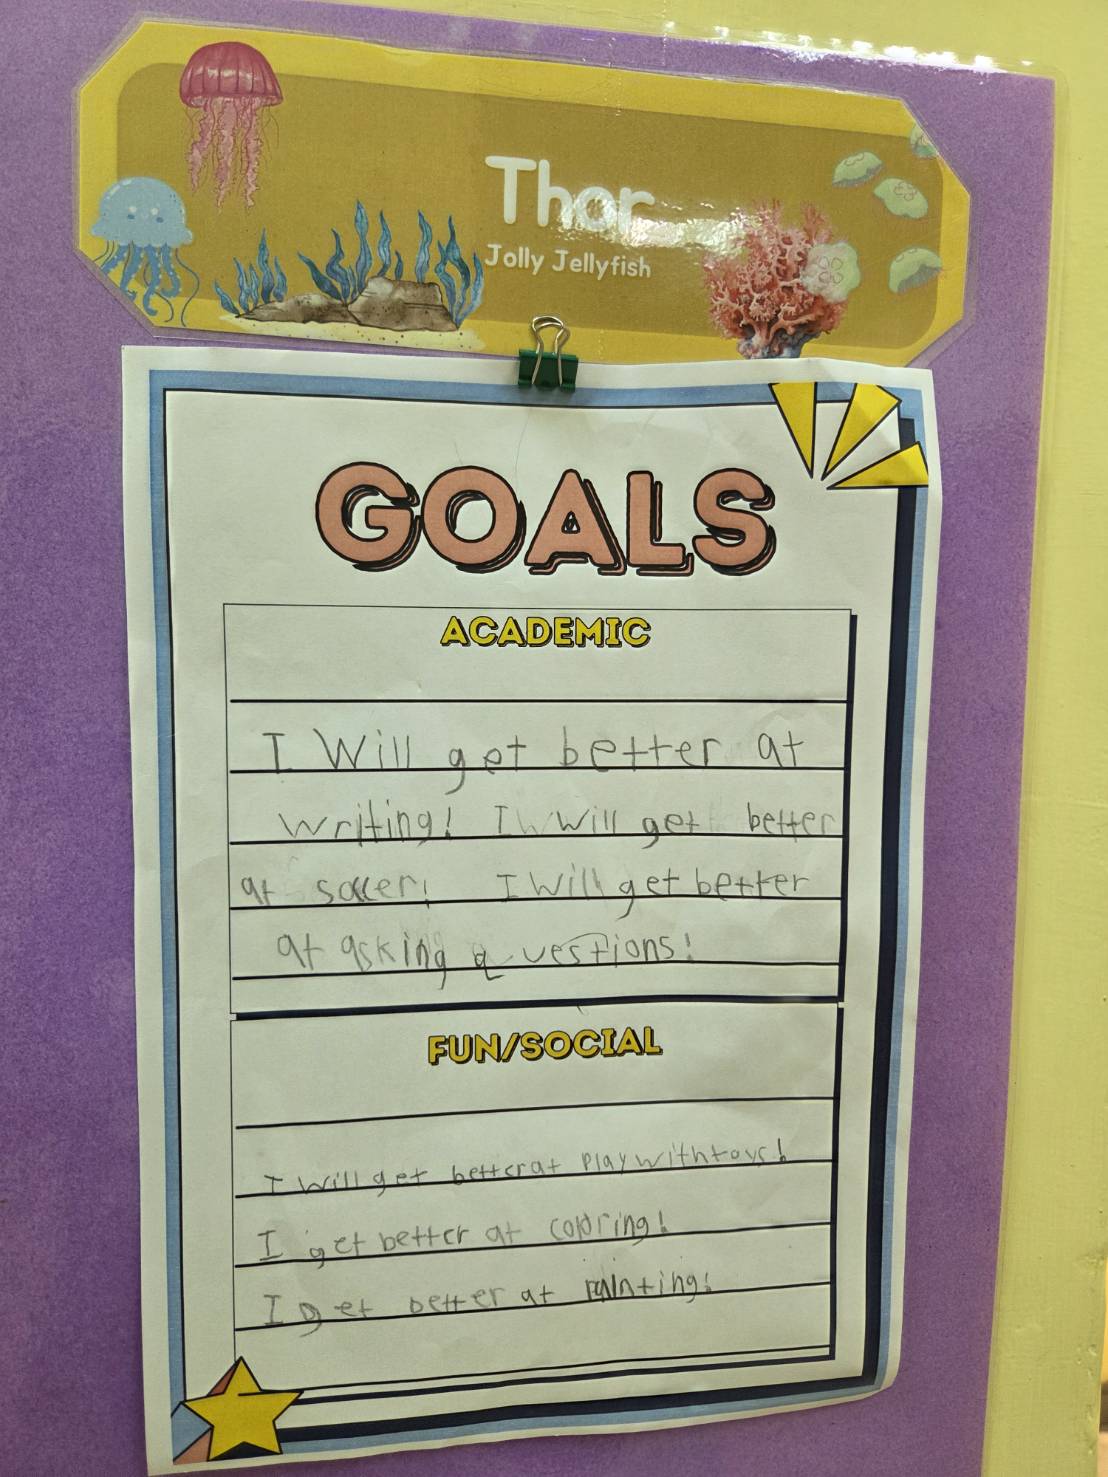 Thor
Jolly Jellyfish
GOALS
ACADEMIC
I Will get better at
writing! I will get better
at soccer! I Will get better
at asking questions!
FUN/SOCIAL
I will get better at play with toys!
I get better at coloring!
I get better at painting!